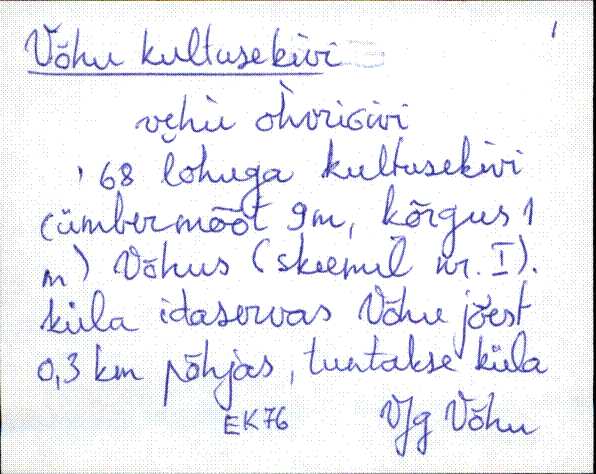 Võhu kultusekivi
1
vęhu ohvriǵivi
68 lohuga kultusekivi
(ümbermõõt 9m, kõrgus 1
m) Võhus (skeemil nr. I).
küla idaservas Võhu jõest
0,3 km põhjas, tuntakse küla
EK76 VJg Võhu